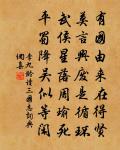 有國由來在得賢
莫言興廢是循環
武侯星落周瑜死
平蜀降吳似等閒
李九齡讀三國志詞典
網